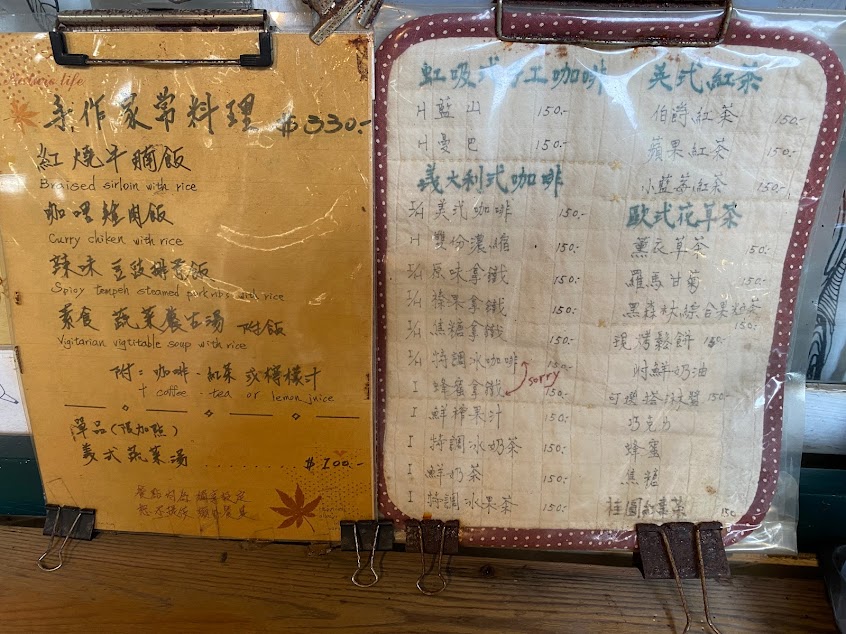 手作家常料理 $330.-
紅燒牛腩飯
Braised sirloin with rice
咖哩雞肉飯
Curry chiken with rice
辣味豆豉排骨飯
Spicy tempeh steamed pork ribs with rice
素食 蔬菜農古湯 附飯
Vigitarian vigtitable soup with rice
附：咖啡．紅茶 或檸檬汁
† coffee · tea or lemon juice
單品(限加點)
義式蔬菜湯 ........ $100.-
虹吸式手工咖啡
H 藍山 150.-
H 曼巴 150.-
義大利式咖啡
I/H 美式咖啡 150.-
H 雙份濃縮 150.-
I/H 原味拿鐵 150.-
I/H 榛果拿鐵 150.-
I/H 焦糖拿鐵 150.-
I/H 特調冰咖啡
sorry
I 蜂蜜拿鐵 150.-
I 鮮榨果汁 150.-
I 特調冰奶茶 150.-
I 鮮奶茶 150.-
I 特調冰果茶 150.-
英式紅茶
伯爵紅茶 150.-
蘋果紅茶 150.-
小藍莓紅茶 150.-
歐式花草茶
薰衣草茶 50.-
羅馬甘菊 150.-
黑森林綜合果粒茶 150.-
現烤鬆餅 150.-
附鮮奶油
可選搭抹醬 150.-
巧克力
蜂蜜
焦糖
桂圓紅棗茶 150